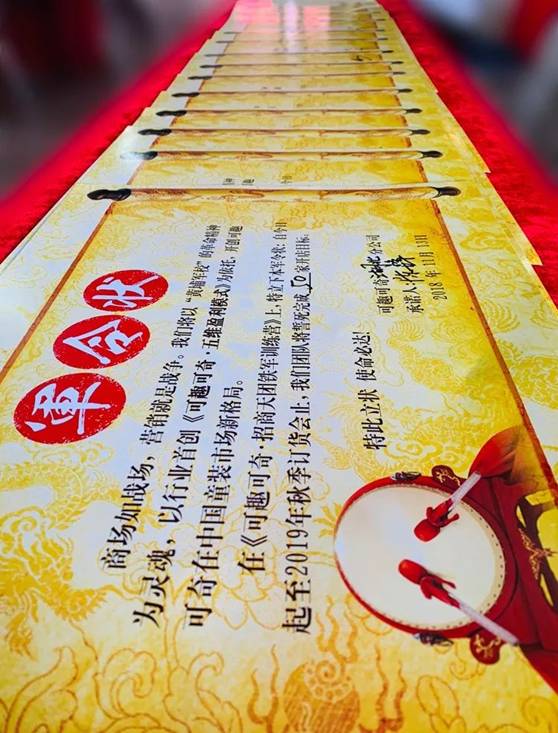 军令状
商场如战场，营销就是战争。我们将以“黄埔军校”的革命精神
为灵魂，以行业首创《可趣可奇·五维盈利模式》为依托，开创可趣
可奇在中国童装市场新格局。
在《可趣可奇·招商天团铁军训练营》上，特立下本军令状：自今日
起至2019年秋季订货会止，我们团队将誓死完成50家开店目标。
特此立状 使命必达！
可趣可奇 分公司
承诺人：
2018年11月13日